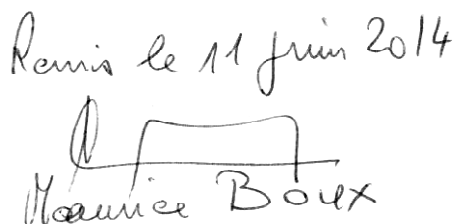 Remis le 11 juin 2014
Maurice Boux